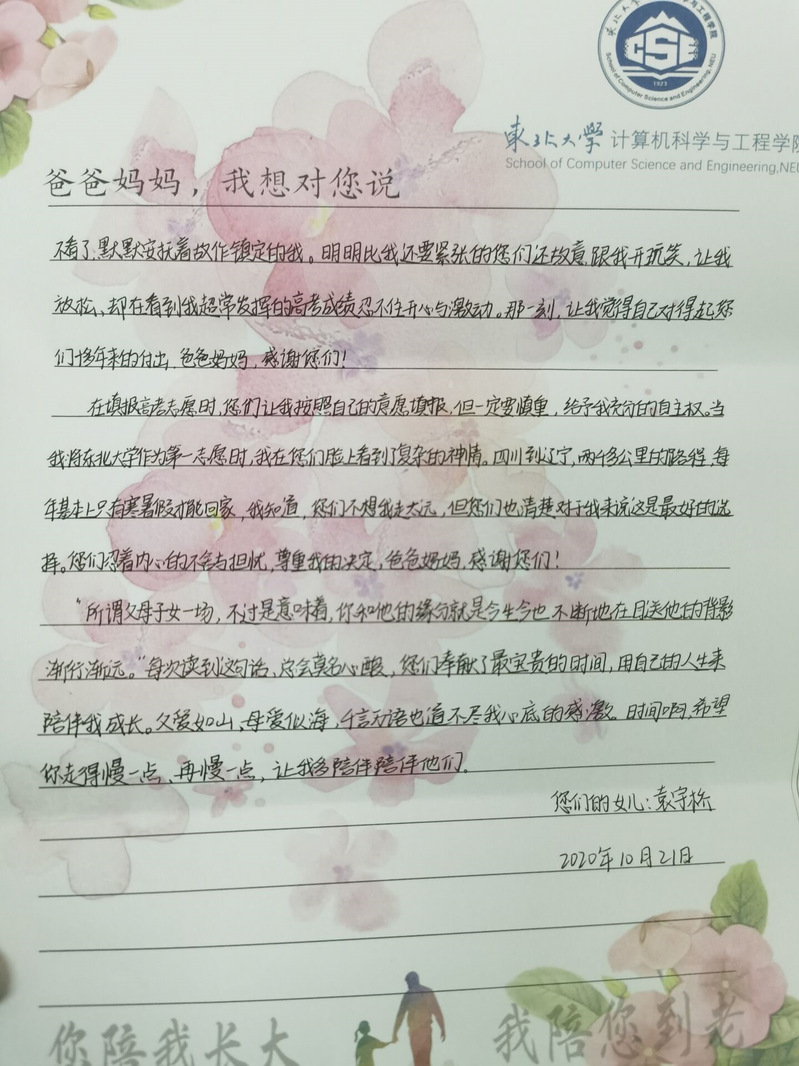 东北大学与工程学院
CSE
School of Computer Science and Engineering, NEU
1973
东北大学 计算机科学与工程学院
School of Computer Science and Engineering,NEU
爸爸妈妈，我想对您说
不看了，默默安抚着故作镇定的我。明明比我还要紧张的您们还故意跟我开玩笑，让我
放松、却在看到我超常发挥的高考成绩忍不住开心与激动。那一刻，让我觉得自己对得起您
们十多年来的付出，爸爸妈妈，感谢您们！
在填报高考志愿时，您们让我按照自己的意愿填报，但一定要慎重，给予我充分的自主权。当
我将东北大学作为第一志愿时，我在您们脸上看到了复杂的神情。四川到辽宁，两千多公里的路程，每
年基本上只有寒暑假才能回家，我知道，您们不想我走太远，但您们也清楚对于我来说这是最好的选
择。您们忍着内心的不舍与担忧，尊重我的决定，爸爸妈妈，感谢您们！
“所谓父母子女一场，不过是意味着，你和他的缘分就是今生今世不断地在目送他的背影
渐行渐远。”每次读到这句话，总会莫名心酸，您们奉献了最宝贵的时间，用自己的人生来
陪伴我成长。父爱如山，母爱似海，千言万语也道不尽我心底的感激。时间啊，希望
你走得慢一点、再慢一点，让我多陪伴陪伴他们。
您们的女儿：袁宇桥
2020年10月21日
你陪我长大 我陪您到老